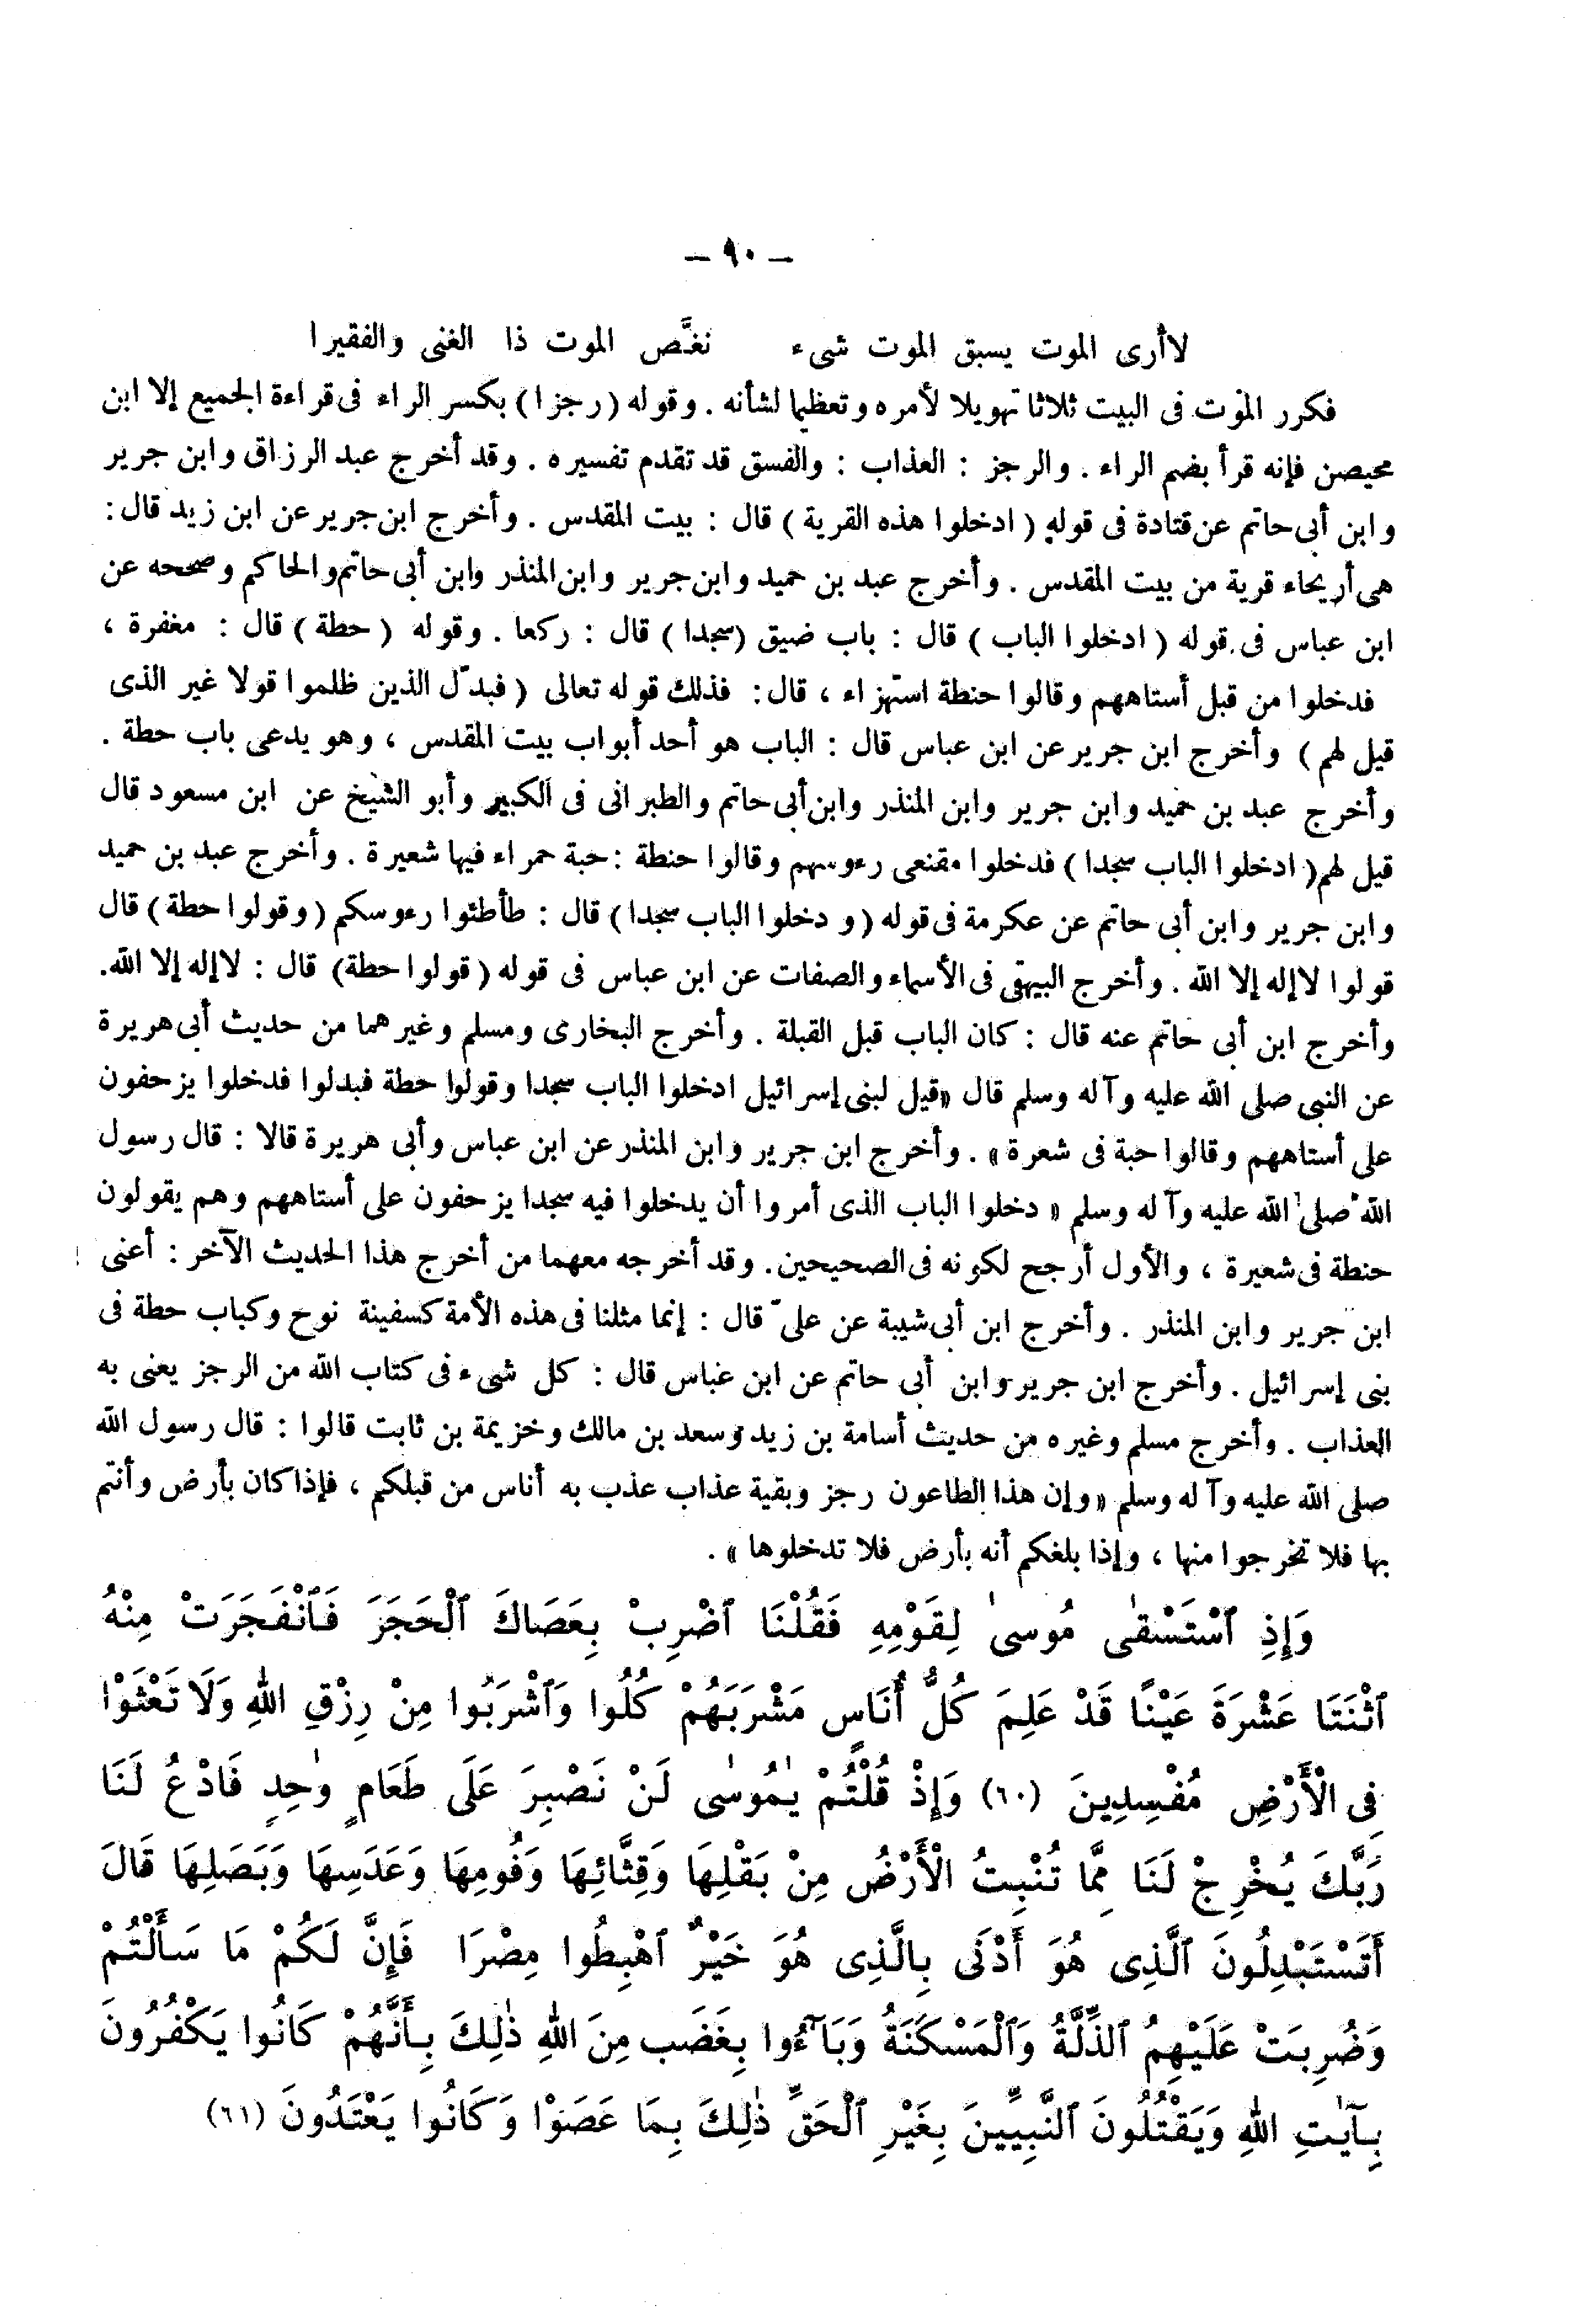 — ٩٠ —
لا أرى الموت يسبق الموت شىء نغَّص الموت ذا الغنى والفقيرا
فكرر الموت فى البيت ثلاثا تهويلا لأمره وتعظيما لشأنه . وقوله (رجزا) بكسر الراء فى قراءة الجميع إلا ابن
محيصن فإنه قرأ بضم الراء . والرجز : العذاب : والفسق قد تقدم تفسيره . وقد أخرج عبد الرزاق وابن جرير
وابن أبى حاتم عن قتادة فى قوله ( ادخلوا هذه القرية ) قال : بيت المقدس . وأخرج ابن جرير عن ابن زيد قال :
هى أريحاء قرية من بيت المقدس . وأخرج عبد بن حميد وابن جرير وابن المنذر وابن أبى حاتم والحاكم وصححه عن
ابن عباس فى قوله ( ادخلوا الباب ) قال : باب ضيق (سجدا ) قال : ركعا . وقوله ( حطة ) قال : مغفرة ،
فدخلوا من قبل أستاههم وقالوا حنطة استهزاء ، قال : فذلك قوله تعالى ( فبدّل الذين ظلموا قولا غير الذى
قيل لهم ) وأخرج ابن جرير عن ابن عباس قال : الباب هو أحد أبواب بيت المقدس ، وهو يدعى باب حطة .
وأخرج عبد بن حميد وابن جرير وابن المنذر وابن أبى حاتم والطبرانى فى الكبير وأبو الشيخ عن ابن مسعود قال
قيل لهم ( ادخلوا الباب سجدا ) فدخلوا مقنعى رءوسهم وقالوا حنطة : حبة حمراء فيها شعيرة . وأخرج عبد بن حميد
وابن جرير وابن أبى حاتم عن عكرمة فى قوله ( و دخلوا الباب سجدا ) قال : طأطئوا رءوسكم ( وقولوا حطة ) قال
قولوا لا إله إلا الله . وأخرج البيهقى فى الأسماء والصفات عن ابن عباس فى قوله ( قولوا حطة ) قال : لا إله إلا الله .
وأخرج ابن أبى حاتم عنه قال : كان الباب قبل القبلة . وأخرج البخارى ومسلم وغيرهما من حديث أبى هريرة
عن النبى صلى الله عليه وآله وسلم قال «قيل لبنى إسرائيل ادخلوا الباب سجدا وقولوا حطة فبدلوا فدخلوا يزحفون
على أستاههم وقالوا حبة فى شعرة » . وأخرج ابن جرير وابن المنذر عن ابن عباس وأبى هريرة قالا : قال رسول
الله صلى الله عليه وآله وسلم « دخلوا الباب الذى أمروا أن يدخلوا فيه سجدا يزحفون على أستاههم وهم يقولون
حنطة فى شعيرة ، والأول أرجح لكونه فى الصحيحين . وقد أخرجه معهما من أخرج هذا الحديث الآخر : أعنى
ابن جرير وابن المنذر . وأخرج ابن أبى شيبة عن علىّ قال : إنما مثلنا فى هذه الأمة كسفينة نوح وكباب حطة فى
بنى إسرائيل . وأخرج ابن جرير وابن أبى حاتم عن ابن عباس قال : كل شىء فى كتاب الله من الرجز يعنى به
العذاب . وأخرج مسلم وغيره من حديث أسامة بن زيد وسعد بن مالك وخزيمة بن ثابت قالوا : قال رسول الله
صلى الله عليه وآله وسلم «وإن هذا الطاعون رجز وبقية عذاب عذب به أناس من قبلكم ، فإذا كان بأرض وأنتم
بها فلا تخرجوا منها ، وإذا بلغكم أنه بأرض فلا تدخلوها » .
وَإِذِ ٱسْتَسْقَىٰ مُوسىٰ لِقَوْمِهِ فَقُلْنَا ٱضْرِبْ بِعَصَاكَ ٱلْحَجَرَ فَٱنْفَجَرَتْ مِنْهُ
ٱثْنَتَا عَشْرَةَ عَيْنًا قَدْ عَلِمَ كُلُّ أُنَاسٍ مَشْرَبَهُمْ كُلُوا وَٱشْرَبُوا مِنْ رِزْقِ اللهِ وَلَا تَعْثَوْا
فِى الْأَرْضِ مُفْسِدِينَ (٦٠) وَإِذْ قُلْتُمْ يٰمُوسٰى لَنْ نَصْبِرَ عَلَى طَعَامٍ وٰحِدٍ فَادْعُ لَنَا
رَبَّكَ يُخْرِجْ لَنَا مِمَّا تُنْبِتُ الْأَرْضُ مِنْ بَقْلِهَا وَقِثَّائِهَا وَفُومِهَا وَعَدَسِهَا وَبَصَلِهَا قَالَ
أَتَسْتَبْدِلُونَ ٱلَّذِى هُوَ أَدْنَى بِالَّذِى هُوَ خَيْرٌ ٱهْبِطُوا مِصْرَا فَإِنَّ لَكُمْ مَا سَأَلْتُمْ
وَضُرِبَتْ عَلَيْهِمُ ٱلذِّلَّةُ وَٱلْمَسْكَنَةُ وَبَآءُوا بِغَضَبٍ مِنَ اللهِ ذٰلِكَ بِأَنَّهُمْ كَانُوا يَكْفُرُونَ
بِـَٔايٰتِ اللهِ وَيَقْتُلُونَ ٱلنَّبِيِّينَ بِغَيْرِ ٱلْحَقِّ ذٰلِكَ بِمَا عَصَوْا وَكَانُوا يَعْتَدُونَ (٦١)